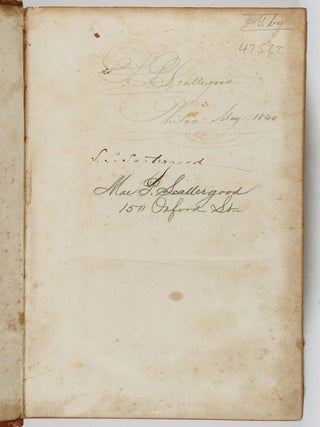 by
47522
Scattergood
Philada May 1. 1840
S. S. Scattergood
Mae T. Scattergood
1511 Oxford St.